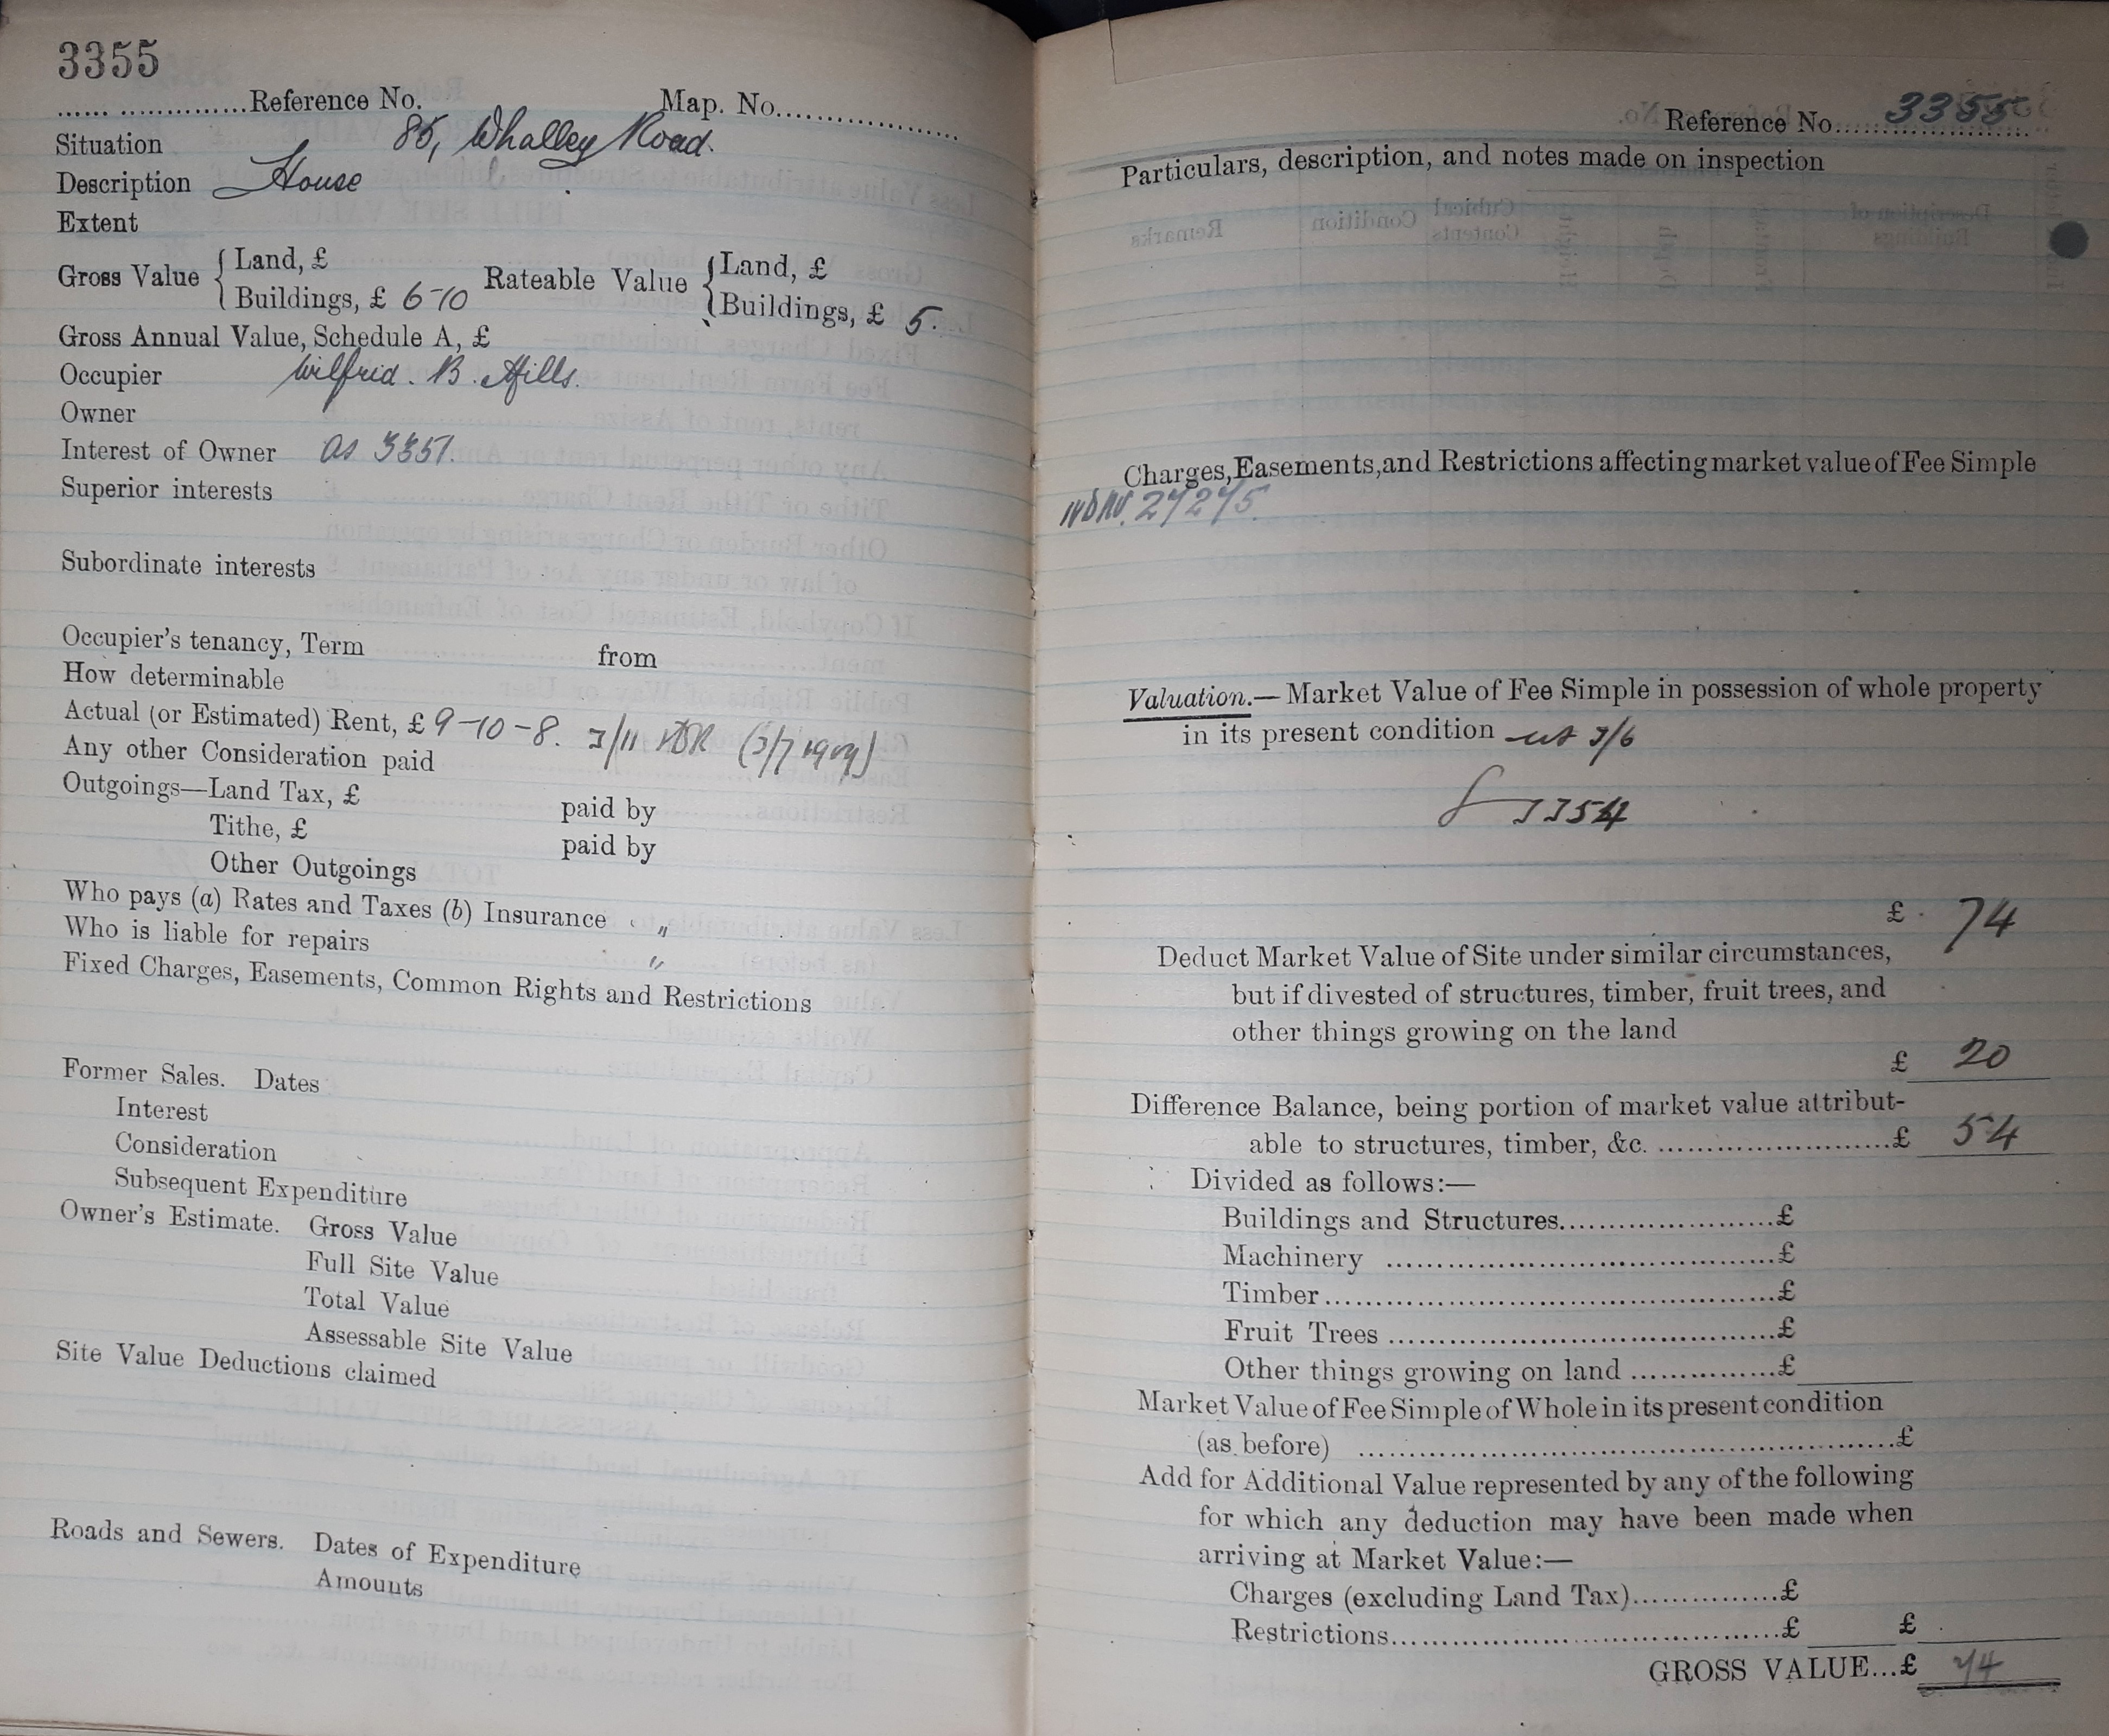 3355
...... ...............Reference No. Map. No....................
Situation 85, Whalley Road.
Description House
Extent
Gross Value { Land, £ Rateable Value { Land, £
Buildings, £ 6-10 Buildings, £ 5.
Gross Annual Value, Schedule A, £
Occupier Wilfrid. B. Mills.
Owner
Interest of Owner as 3351.
Superior interests
Subordinate interests
Occupier's tenancy, Term from
How determinable
Actual (or Estimated) Rent, £ 9-10-8. 3/11 (3/7 1909)
Any other Consideration paid
Outgoings—Land Tax, £ paid by
Tithe, £ paid by
Other Outgoings
Who pays (a) Rates and Taxes (b) Insurance "
Who is liable for repairs "
Fixed Charges, Easements, Common Rights and Restrictions
Former Sales. Dates
Interest
Consideration
Subsequent Expenditure
Owner's Estimate. Gross Value
Full Site Value
Total Value
Assessable Site Value
Site Value Deductions claimed
Roads and Sewers. Dates of Expenditure
Amounts
Reference No. 3355
Particulars, description, and notes made on inspection
Charges, Easements, and Restrictions affecting market value of Fee Simple
27275.
Valuation.— Market Value of Fee Simple in possession of whole property
in its present condition 3/6
3354
£ 74
Deduct Market Value of Site under similar circumstances,
but if divested of structures, timber, fruit trees, and
other things growing on the land
£ 20
Difference Balance, being portion of market value attribut-
able to structures, timber, &c. ........................£ 54
Divided as follows:—
Buildings and Structures......................£
Machinery .......................................£
Timber.............................................£
Fruit Trees .......................................£
Other things growing on land ...............£
Market Value of Fee Simple of Whole in its present condition
(as before) ......................................................£
Add for Additional Value represented by any of the following
for which any deduction may have been made when
arriving at Market Value:—
Charges (excluding Land Tax)...............£
Restrictions.......................................£ £
GROSS VALUE...£ 74